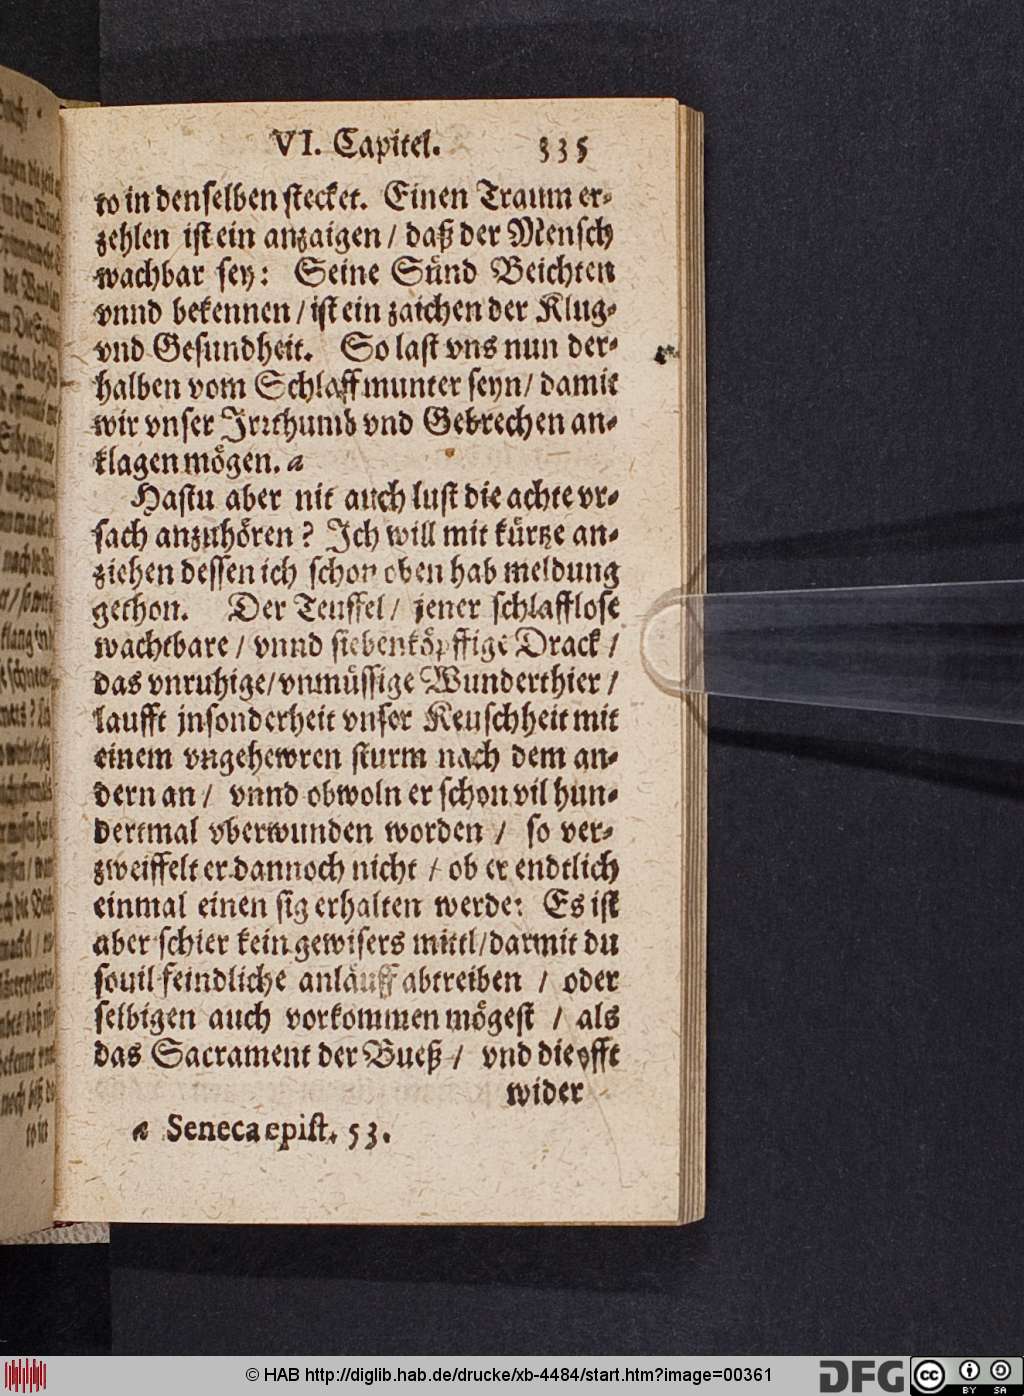 VI. Capitel. 335
to in denselben stecket. Einen Traum er-
zehlen ist ein anzaigen / daß der Mensch
wachbar sey: Seine Sünd Beichten
vnnd bekennen / ist ein zaichen der Klug-
vnd Gesundheit. So last vns nun der-
halben vom Schlaff munter seyn / damit
wir vnser Irrthumb vnd Gebrechen an-
klagen mögen. a
Hastu aber nit auch lust die achte vr-
sach anzuhören? Ich will mit kürtze an-
ziehen dessen ich schon oben hab meldung
gethon. Der Teuffel / jener schlafflose
wachtbare / vnnd siebenköpffige Drack /
das vnruhige / vnmüssige Wunderthier /
laufft jnsonderheit vnser Keuschheit mit
einem vngehewren sturm nach dem an-
dern an / vnnd obwoln er schon vil hun-
dertmal vberwunden worden / so ver-
zweiffelt er dannoch nicht / ob er endtlich
einmal einen sig erhalten werde: Es ist
aber schier kein gewisers mittl / darmit du
souil feindliche anläuff abtreiben / oder
selbigen auch vorkommen mögest / als
das Sacrament der Bueß / vnd die offt
wider
a Seneca epist. 53.
© HAB http://diglib.hab.de/drucke/xb-4484/start.htm?image=00361
DFG
cc BY SA